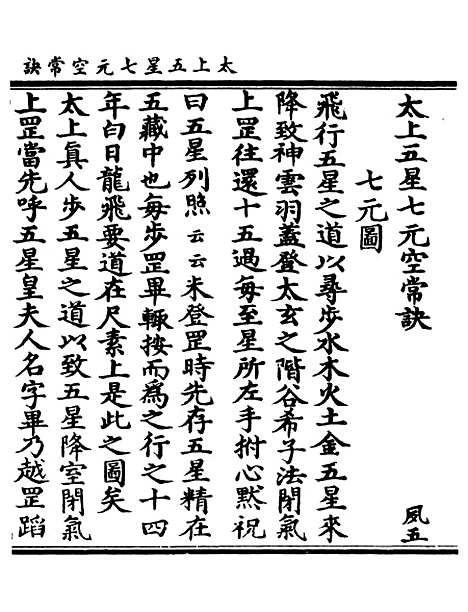 太上五星七元空常訣
太上五星七元空常訣 風五
七元圖
飛行五星之道以尋步水木火土金五星來
降致神雲羽蓋登太玄之階谷希子法閉氣
上罡往還十五過每至星所左手拊心默祝
曰五星列照云云未登罡時先存五星精在
五藏中也每步罡畢輙按而為之行之十四
年白日龍飛要道在尺素上是此之圖矣
太上真人步五星之道以致五星降室閉氣
上罡當先呼五星皇夫人名字畢乃越罡蹈